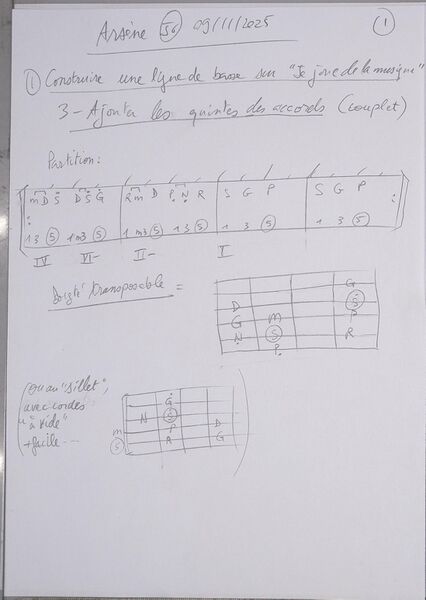 Arsène 56 09/11/2025 1
1 Construire une ligne de basse sur "Je joue de la musique"
3 - Ajouter les quintes des accords (couplet)
Partition :
m D S D S G R m D P N R S G P S G P
1 3 5 1 m3 5 1 m3 5 1 3 5 1 3 5 1 3 5
IV VI- II- I
Doigté transposable =
G
D S
G m P
N S R
P
(ou au "sillet",
avec cordes
"à vide"
+ facile ...
G
N S
m P D
S R G